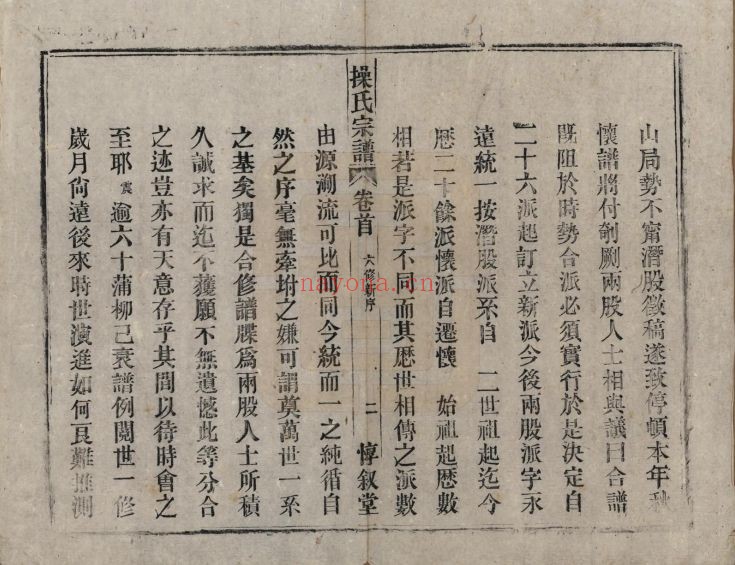 山局勢不甯潛股徵稿遂致停頓本年秋
懷譜將付剞劂兩股人士相與議曰合譜
旣阻於時勢合派必須實行於是決定自
二十六派起訂立新派今後兩股派字永
遠統一按潛股派系自 二世祖起迄今
歷二十餘派懷派自遷懷 始祖起歷數
相若是派字不同而其歷世相傳之派數
操氏宗譜 卷首 六修新序 二 惇敘堂
由源溯流可比而同今統而一之純循自
然之序毫無牽坿之嫌可謂奠萬世一系
之基矣獨是合修譜牒爲兩股人士所積
久誠求而迄不獲願不無遺憾此等分合
之迹豈亦有天意存乎其間以待時會之
至耶 震 逾六十蒲柳已衰譜例閱世一修
歲月尙遠後來時世演進如何良難推測
nayona.cn